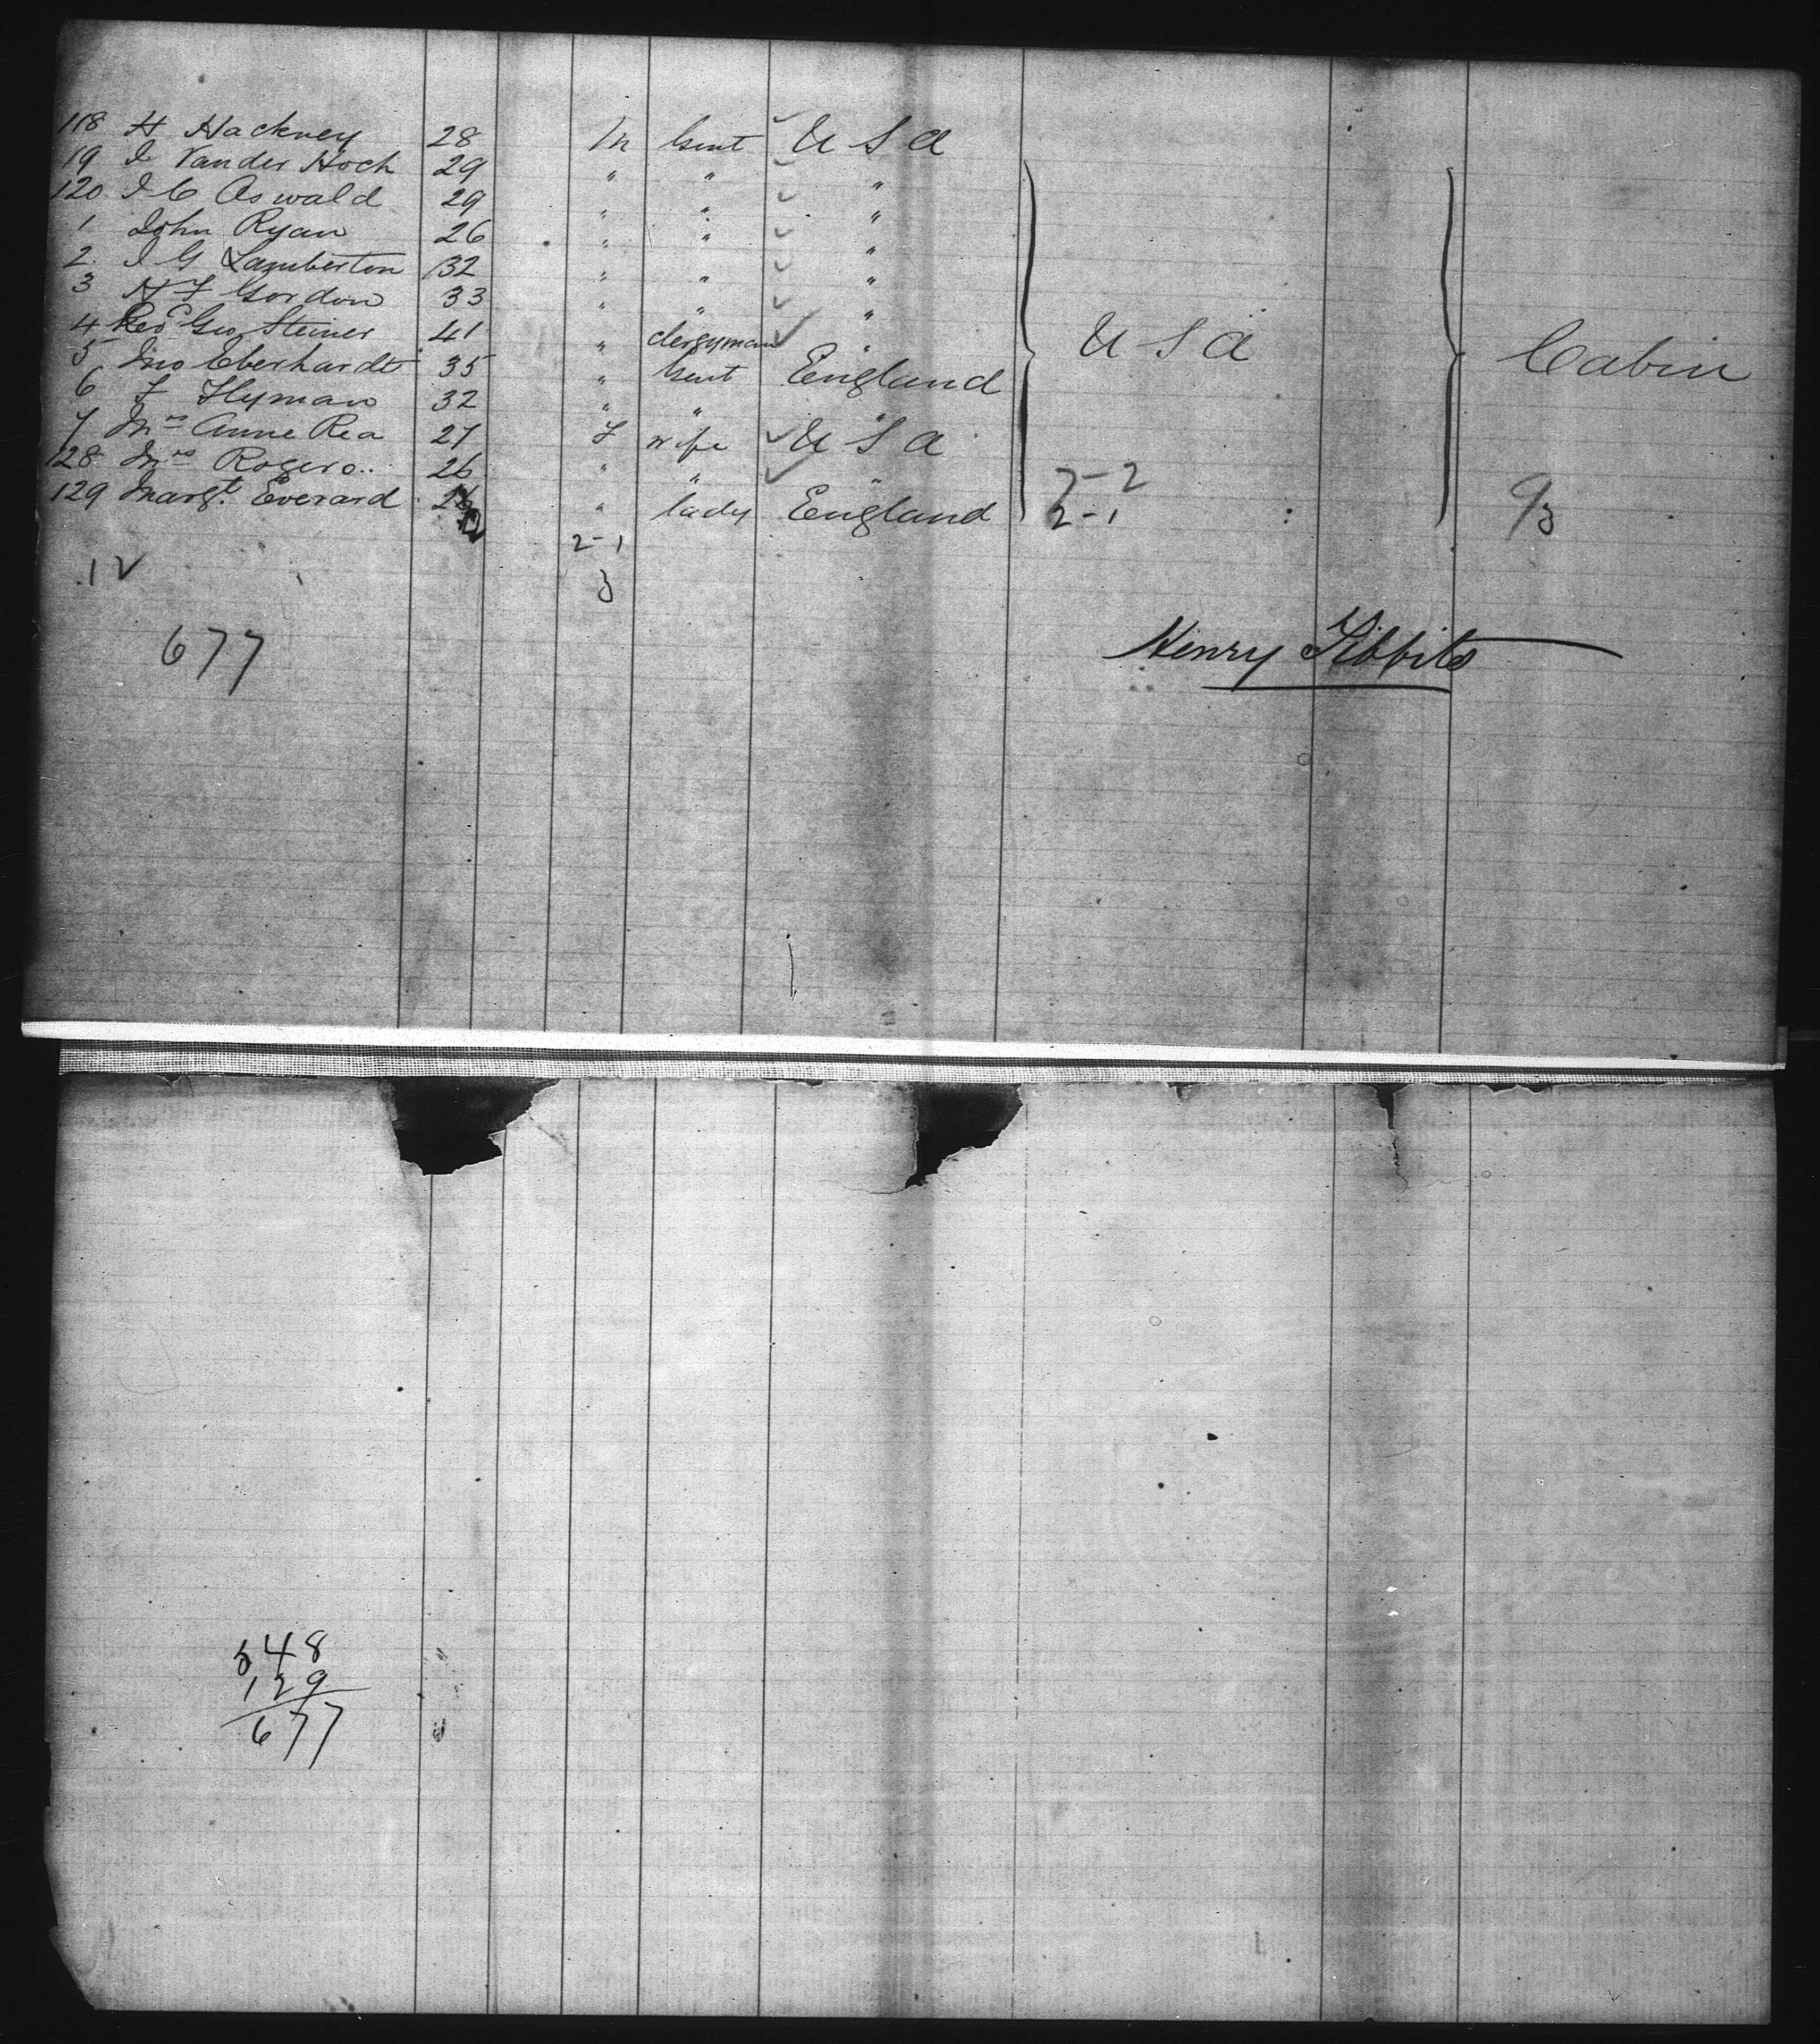 118 H Hackney 28 M Gent U S A
19 I Vander Hoch 29 " " "
120 I C Oswald 29 " " "
1 John Ryan 26 " " "
2 I G Lamberton 32 " " "
3 H F Gordon 33 " " "
4 Revd Geo Steiner 41 " clergyman " U S A Cabin
5 Jno Eberhardt 35 " Gent England
6 F Hyman 32 " " "
7 Mrs Anne Rea 27 F wife U S A
128 Mrs Rogers 26 " " " 7-2
129 Margt Everard " lady England 2-1 9/3
2-1
12 3
677 Henry Tibbits
548
129
677